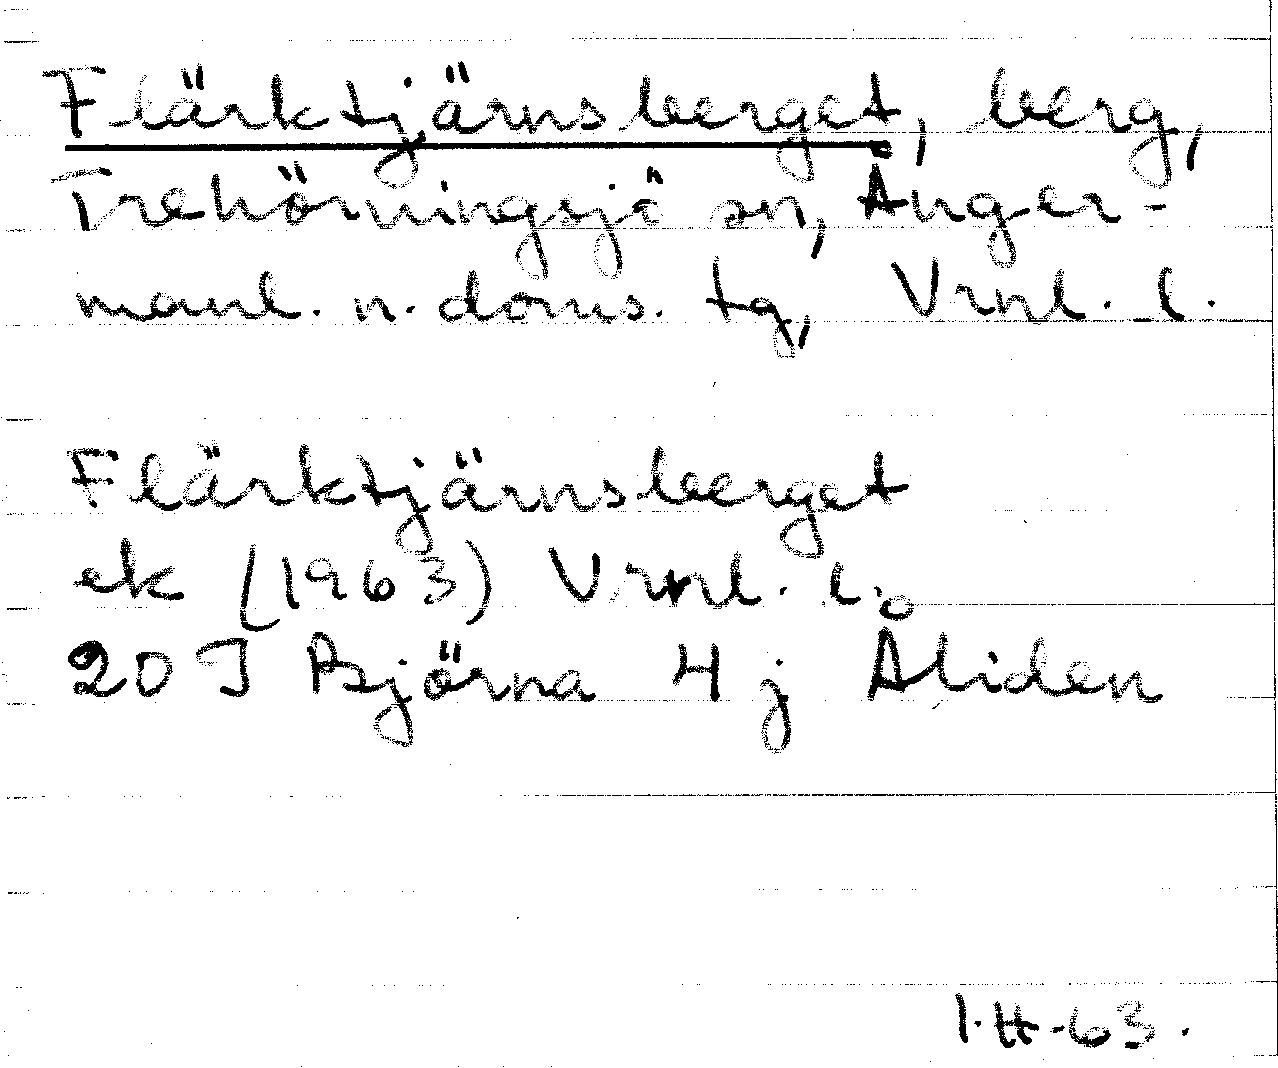 Flärktjärnsberget, berg,
Trehörningsjö sn, Ånger-
manl. n. doms. tg, Vrnl. l.
Flärktjärnsberget
ek (1963) Vrnl. l.
20 J Björna 4 j Åliden
I.H-63.